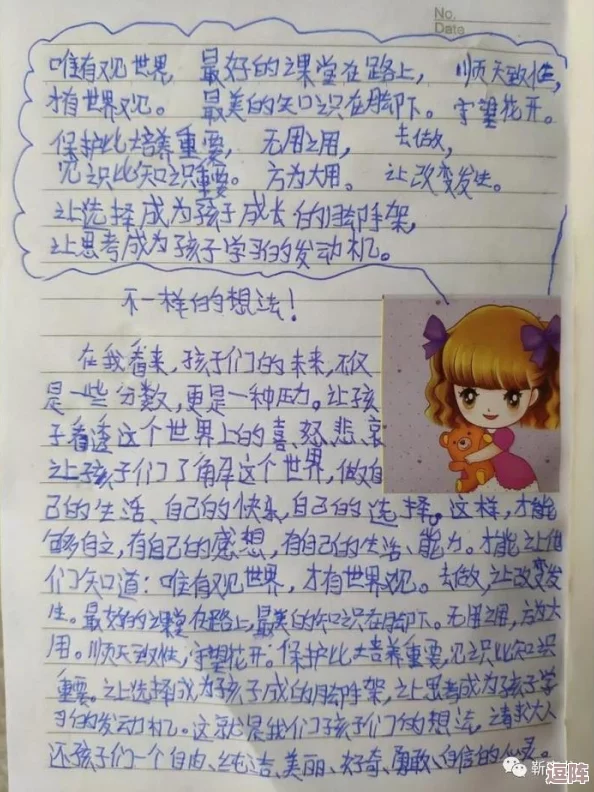 No.
Date
唯有观世界, 最好的课堂在路上, 顺天致性,
才有世界观。 最美的知识在脚下。 守望花开。
保护比培养重要, 无用之用, 去做,
见识比知识重要。 方为大用。 让改变发生。
让选择成为孩子成长的脚手架,
让思考成为孩子学习的发动机。
不一样的想法!
在我看来,孩子们的未来,不仅
是一些分数,更是一种压力。让孩
子看透这个世界上的喜、怒、悲、哀
让孩子们了解这个世界,做自
己的生活、自己的快乐,自己的选择。这样,才能
够自立,有自己的感想,有自己的生活、能力。才能让他
们知道:唯有观世界,才有世界观。去做,让改变发
生。最好的课堂在路上,最美的知识在脚下。无用之用,方为大
用。顺天致性,守望花开。保护比培养重要,见识比知识
重要。让选择成为孩子成的脚手架,让思考成为孩子学
习的发动机。这就是我们子孩子们的想法,请求大人
还孩子们一个自由、纯洁、美丽、好奇、勇敢、自信的心灵。
逗阵